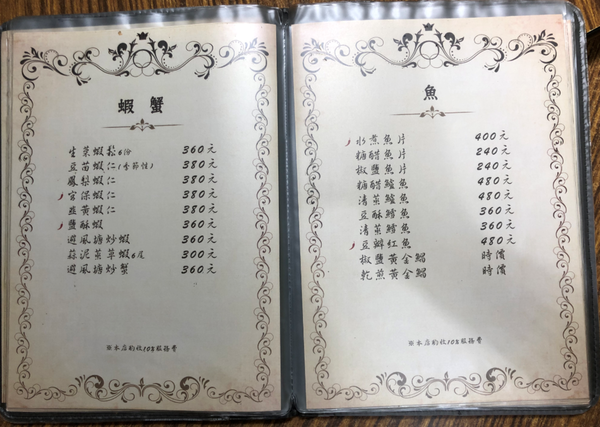 蝦 蟹
生菜蝦鬆6份 360元
豆苗蝦仁(季節性) 380元
鳳梨蝦仁 380元
宮保蝦仁 380元
韮黃蝦仁 380元
鹽酥蝦 360元
避風塘炒蝦 360元
蒜泥菜草蝦6尾 300元
避風塘炒蟹 360元
※本店酌收10%服務費
魚
水煮魚片 400元
糖醋魚片 240元
椒鹽魚片 240元
糖醋鱸魚 480元
清蒸鱸魚 480元
豆酥鱈魚 360元
清蒸鱈魚 360元
豆瓣紅魚 480元
椒鹽黃金鯧 時價
乾煎黃金鯧 時價
※本店酌收10%服務費